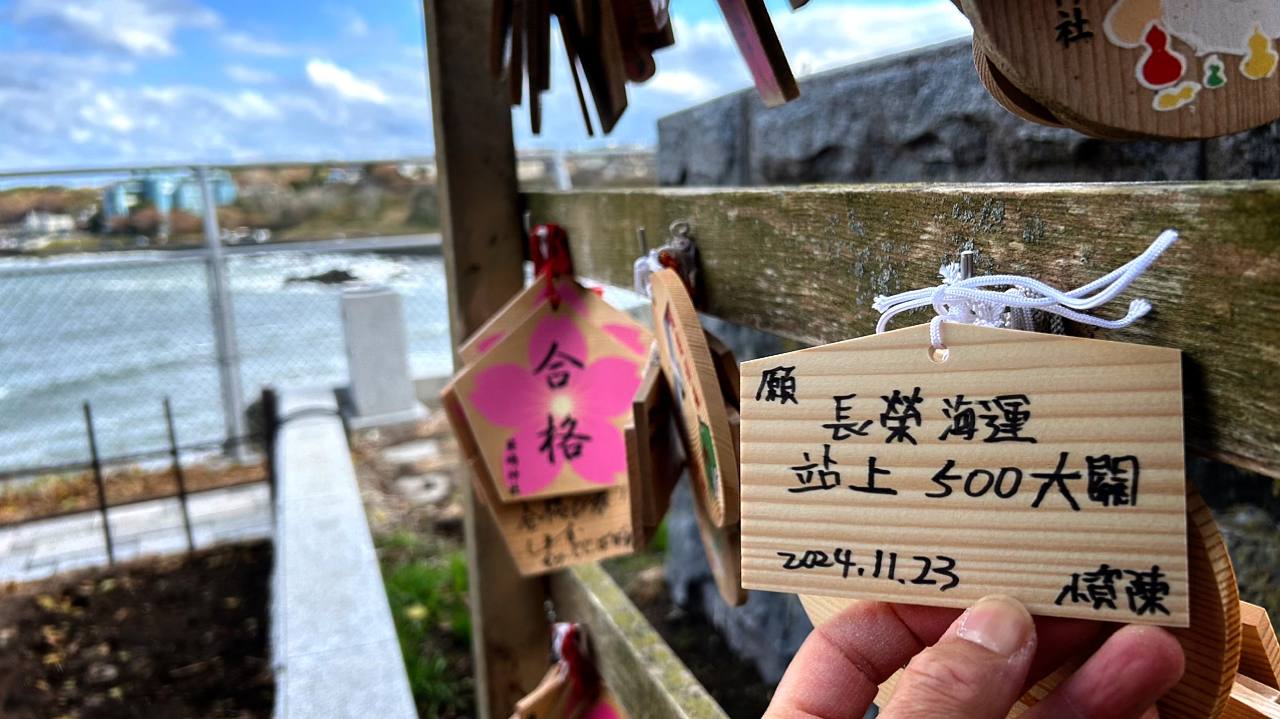 社
合格
願
長榮海運
站上500大關
2024.11.23